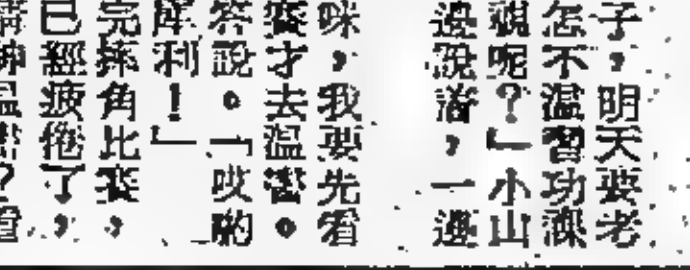 子,明天要老
怎不温習功課
視呢?」小山
邊說著,一邊
咪,我要先看
賽才去温習。
答說。「哎喲
犀利!」
完摔角比賽,
已經疲倦了,
精神温習?電